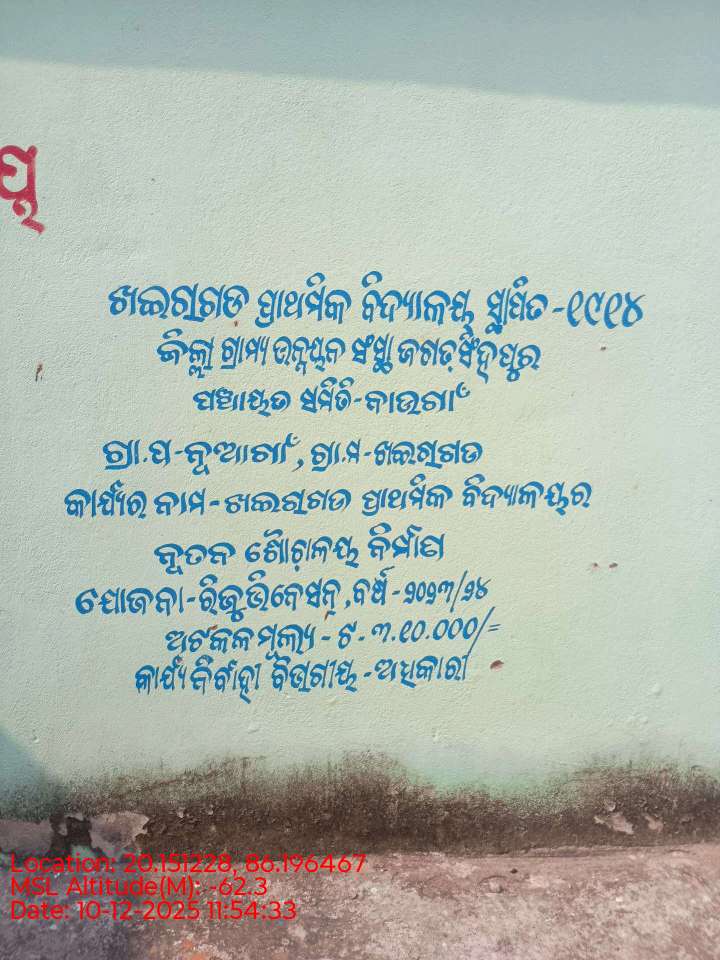 ୟ
ଖଇରାଗଡ ପ୍ରାଥମିକ ବିଦ୍ୟାଳୟ ସ୍ଥାପିତ-୧୯୧୪
ଜିଲ୍ଲା ଗ୍ରାମ୍ୟ ଉନ୍ନୟନ ସଂସ୍ଥା ଜଗତସିଂହପୁର
ପଞ୍ଚାୟତ ସମିତି-ନାଉଗାଁ
ଗ୍ରା.ପ-ନୂଆଗାଁ, ଗ୍ରା.ମ-ଖଇରାଗଡ
କାର୍ଯ୍ୟର ନାମ-ଖଇରାଗଡ ପ୍ରାଥମିକ ବିଦ୍ୟାଳୟର
ନୂତନ ଶୌଚାଳୟ ନିର୍ମାଣ
ଯୋଜନା-ରିଜୁଭିନେସନ୍, ବର୍ଷ-୨୦୨୩/୨୪
ଅଟକଳ ମୂଲ୍ୟ-ଟ.୩.୧୦.୦୦୦/=
କାର୍ଯ୍ୟ ନିର୍ବାହୀ ବିଭାଗୀୟ-ଅଧିକାରୀ
Location: 20.151228, 86.196467
MSL Altitude(M): -62.3
Date: 10-12-2025 11:54:33